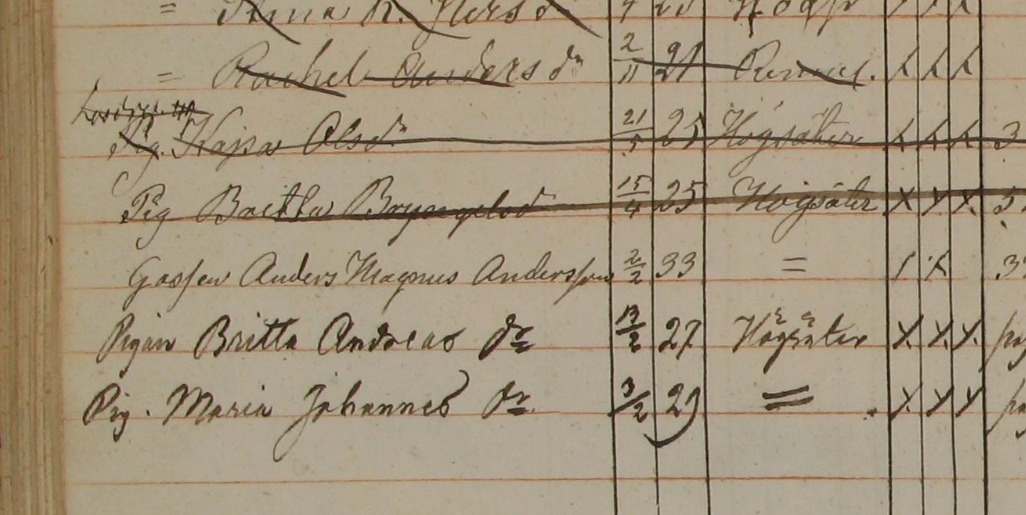 = Anna N. Persd
= Rachel Andersdr 2/11 21
Pig. Kajsa Olsdr 21/5 25 Högsäter 3
Pig Britta Bryngelsd 15/4 25 Högsäter X X X 5
Gossen Anders Magnus Andersson 2/2 33 = 3
Pigan Britta Andreas dr 13/2 27 Högsäter X X X pag
Pig. Maria Johannes dr 3/2 29 = X X X pa